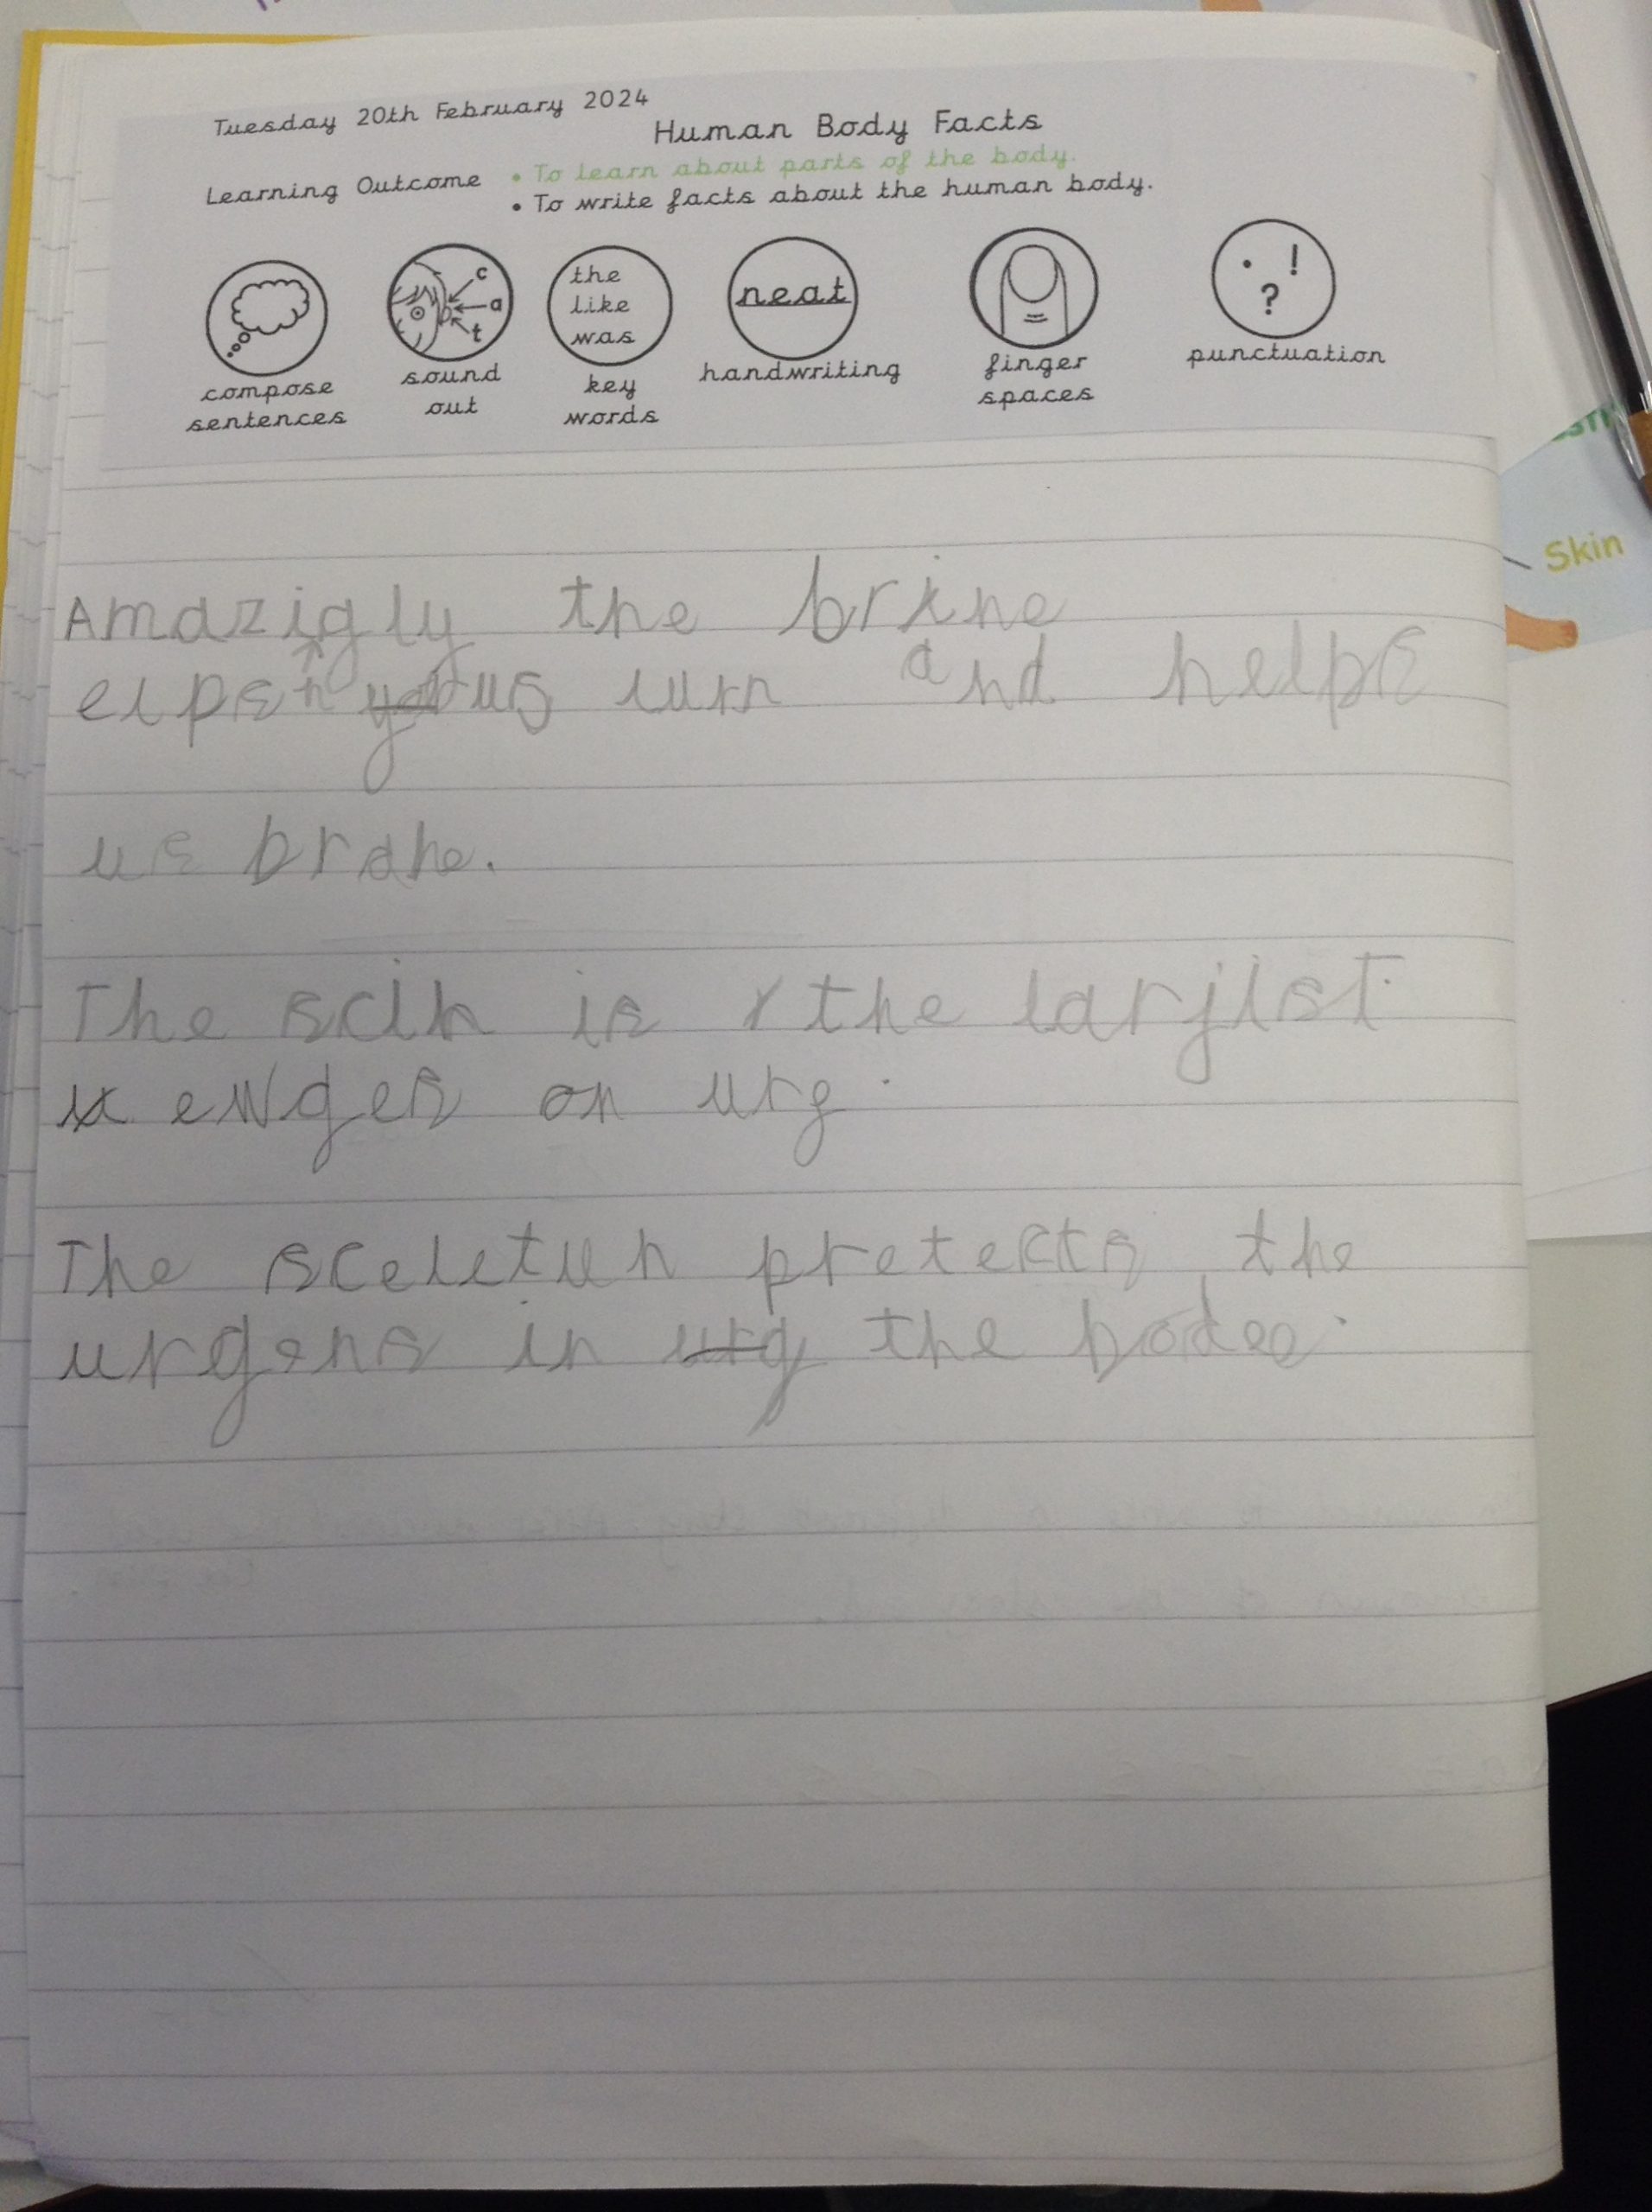 Tuesday 20th February 2024
Human Body Facts
Learning Outcome • To learn about parts of the body.
• To write facts about the human body.
c
a
t
the
like
was
neat
. ! ?
compose sentences
sound out
key words
handwriting
finger spaces
punctuation
Skin
Amazigly the brine
n
elps us lurn and helps
us brahe.
The scin is the larjist
enges on urg.
The sceletun pretects the
urgens in urg the bodee.